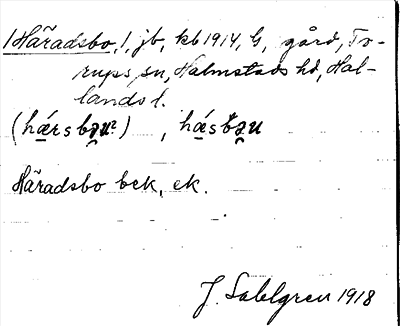 /Häradsbo,/, jb, kb 1914, G, gård, To-
rups sn, Halmstads hd, Hal-
lands l.
(hærsbəu²) , hæsbəu
Häradsbo bek, ek.
J. Sahlgren 1918